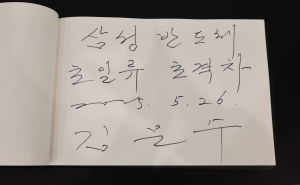 삼성반도체
초일류 초격차
2025. 5. 26.
김문수